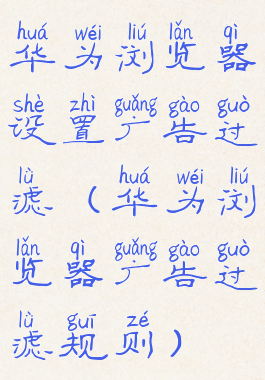 huá wéi liú lǎn qì
华为浏览器
shè zhì guǎng gào guò
设置广告过
lǜ huá wéi liú
滤（华为浏
lǎn qì guǎng gào guò
览器广告过
lǜ guī zé
滤规则）